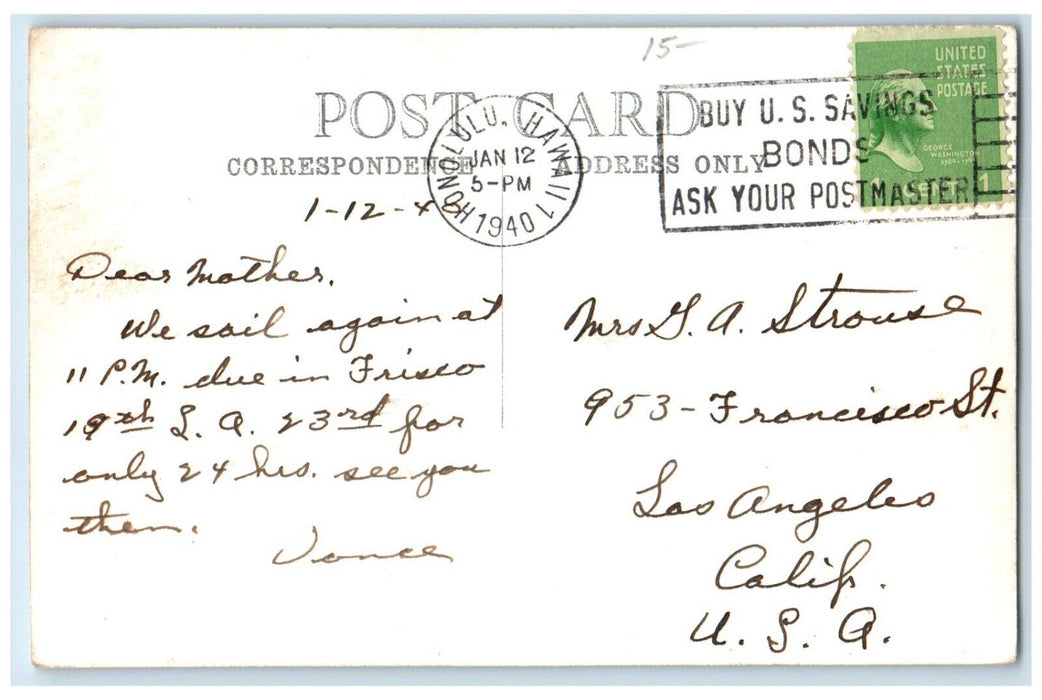 15-
POST CARD
CORRESPONDENCE ADDRESS ONLY
HONOLULU, HAWAII 1
JAN 12
5-PM
1940
BUY U. S. SAVINGS
BONDS
ASK YOUR POSTMASTER
UNITED
STATES
POSTAGE
GEORGE
WASHINGTON
1
1-12-4
Dear Mother.
We sail again at
11 P.M. due in Frisco
19th L. A. 23rd for
only 24 hrs. see you
then.
Vance
Mrs G. A. Strouse
953 - Francisco St.
Los Angeles
Calif.
U. S. A.